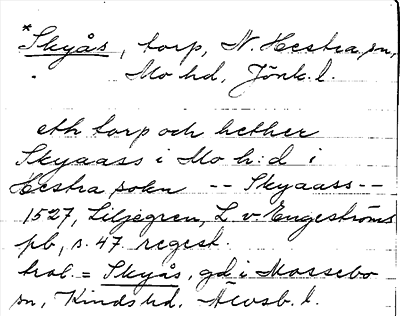 *Skyås, torp, N. Hestra sn,
Mo hd, Jönk. l.
eth torp och hether
Skyaass i Mo h:d i
Hestra sokn -- Skyaass --
1527, Liljegren, L. v. Engeströms
pb, s. 47 regest.
trol. = Skyås, gd i Mossebo
sn, Kinds hd. Älvsb. l.